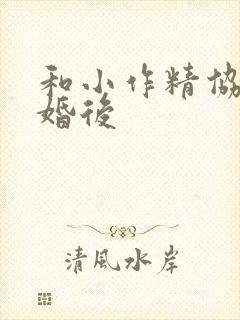 和小作精協
婚後
清風水岸